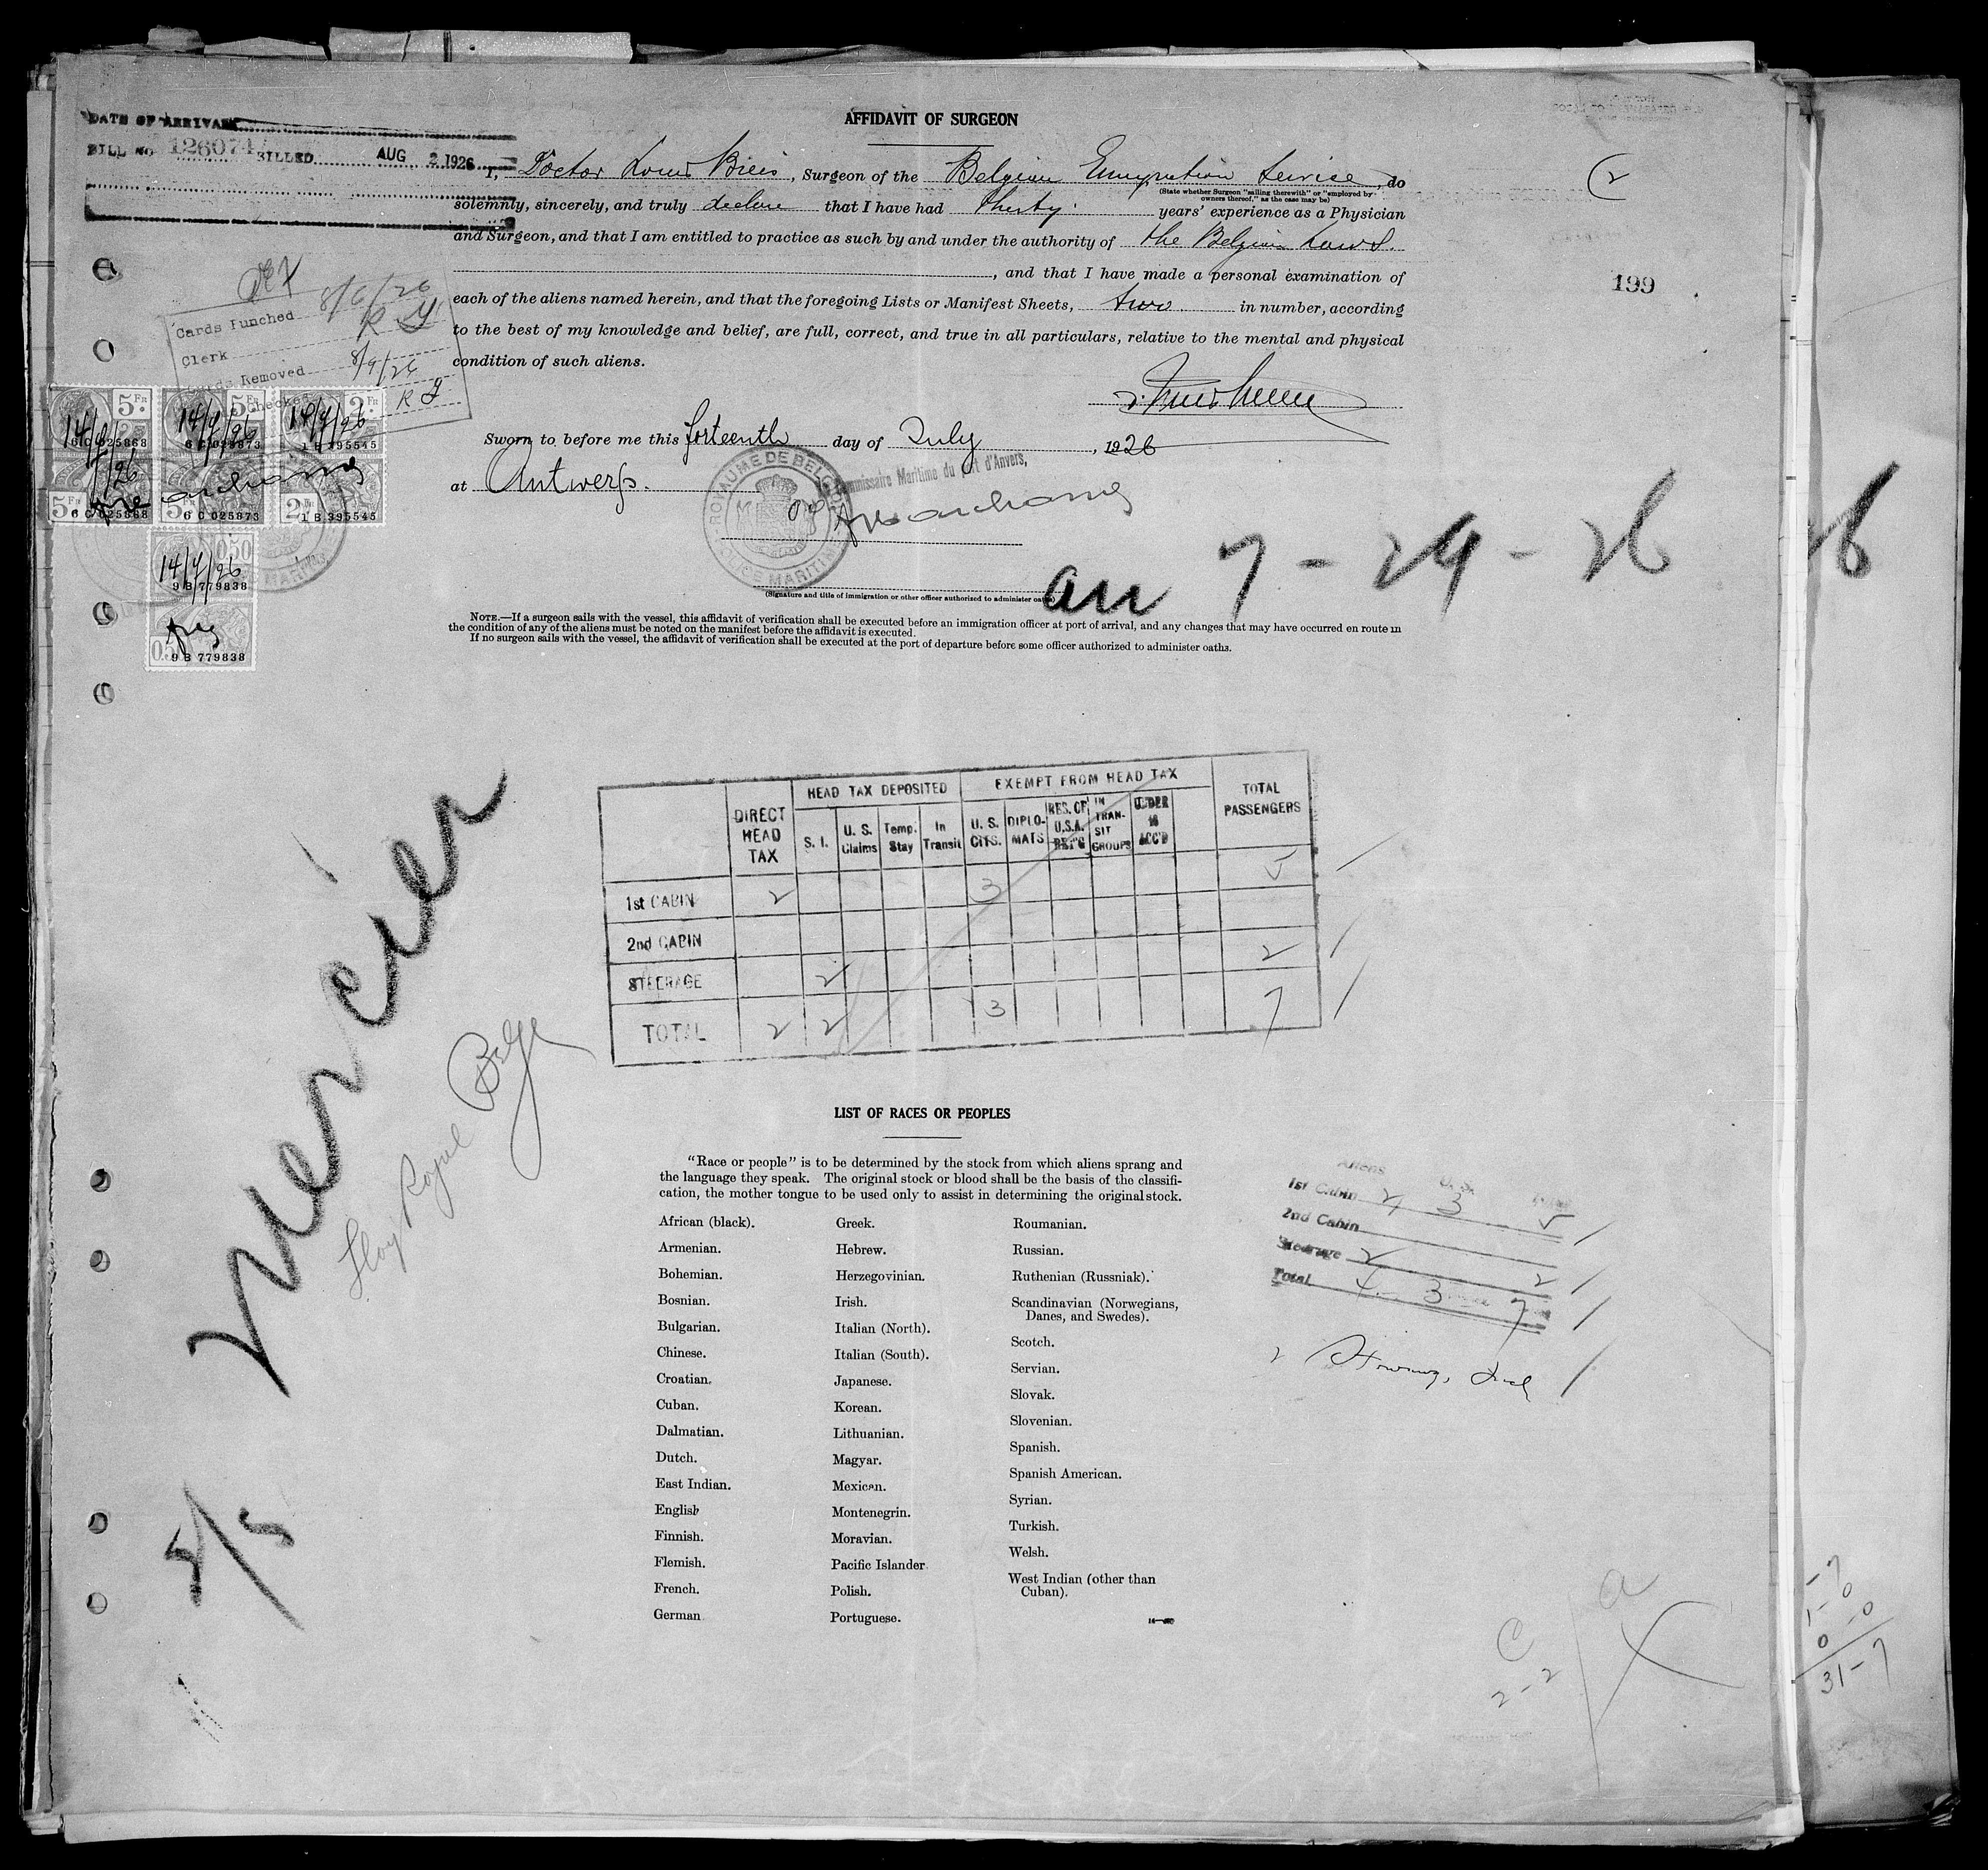 AFFIDAVIT OF SURGEON
DATE OF ARRIVAL
BILL No 126074 BILLED AUG 2 1926
I, Doctor Louis , Surgeon of the Belgian Emigration Service, do
(State whether Surgeon "sailing therewith" or "employed by
owners thereof," as the case may be)
solemnly, sincerely, and truly declare that I have had thirty years' experience as a Physician
and Surgeon, and that I am entitled to practice as such by and under the authority of the Belgian Laws.
, and that I have made a personal examination of
each of the aliens named herein, and that the foregoing Lists or Manifest Sheets, two in number, according
to the best of my knowledge and belief, are full, correct, and true in all particulars, relative to the mental and physical
condition of such aliens.
(2
199
Cards Punched 8/6/26
Clerk R
Cards Removed 8/9/26
Checked R
Sworn to before me this forteenth day of July, 1926
at Antwerp.
Commissaire Maritime du port d'Anvers,
ROYAUME DE BELGIQUE
POLICE MARITIME
5 FR 5 FR 2 FR
14/7/26 14/7/26 14/7/26
6 C 025868 6 C 025873 1 B 395545
5 FR 5 FR 2 FR
6 C 025868 6 C 025873 1 B 395545
0.50
14/7/26
9 B 779838
0.50
9 B 779838
(Signature and title of immigration or other officer authorized to administer oaths)
arr 7-29-26
NOTE.—If a surgeon sails with the vessel, this affidavit of verification shall be executed before an immigration officer at port of arrival, and any changes that may have occurred en route in
the condition of any of the aliens must be noted on the manifest before the affidavit is executed.
If no surgeon sails with the vessel, the affidavit of verification shall be executed at the port of departure before some officer authorized to administer oaths.
Mercier
Lloyd Royal Belge
DIRECT HEAD TAX HEAD TAX DEPOSITED EXEMPT FROM HEAD TAX TOTAL PASSENGERS
S. I. U. S. Claims Temp. Stay In Transit U. S. CITS. DIPLOMATS RES. OF U.S.A. RET'G IN TRANSIT GROUPS UNDER 16 ACC'D
1st CABIN 2 3 5
2nd CABIN
STEERAGE 2 2
TOTAL 2 2 3 7
LIST OF RACES OR PEOPLES
"Race or people" is to be determined by the stock from which aliens sprang and
the language they speak. The original stock or blood shall be the basis of the classifi-
cation, the mother tongue to be used only to assist in determining the original stock.
African (black).
Armenian.
Bohemian.
Bosnian.
Bulgarian.
Chinese.
Croatian.
Cuban.
Dalmatian.
Dutch.
East Indian.
English
Finnish.
Flemish.
French.
German
Greek.
Hebrew.
Herzegovinian.
Irish.
Italian (North).
Italian (South).
Japanese.
Korean.
Lithuanian.
Magyar.
Mexican.
Montenegrin.
Moravian.
Pacific Islander
Polish.
Portuguese.
Roumanian.
Russian.
Ruthenian (Russniak).
Scandinavian (Norwegians,
Danes, and Swedes).
Scotch.
Servian.
Slovak.
Slovenian.
Spanish.
Spanish American.
Syrian.
Turkish.
Welsh.
West Indian (other than
Cuban).
Aliens U. S. Total
1st Cabin 2 3 5
2nd Cabin
Steerage 2 2
Total 4 3 7
8/5
C a
2-2
31-7